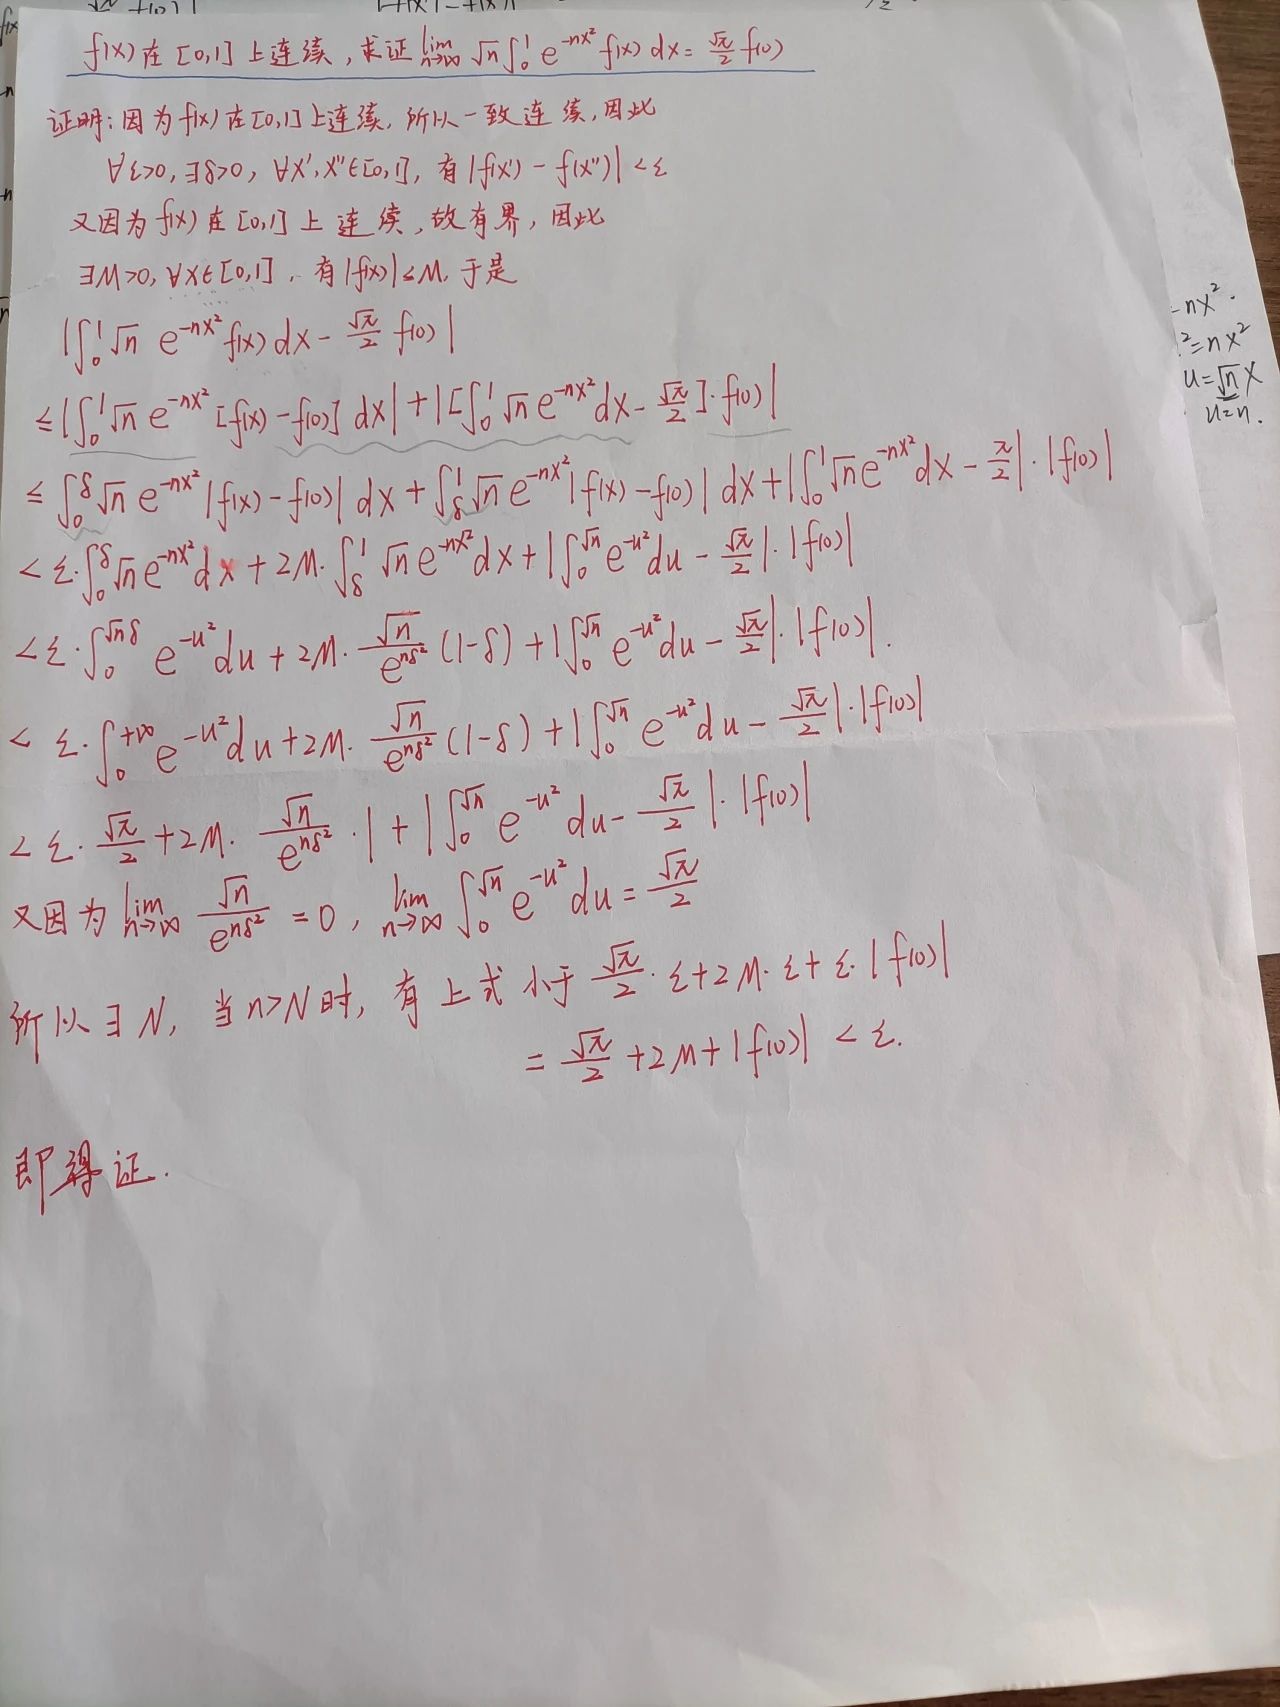 f(x)在[0,1]上连续,求证 lim n→∞ √n∫₀¹ e^{-nx²} f(x) dx = √π/2 f(0)
证明:因为f(x)在[0,1]上连续,所以一致连续,因此
∀ε>0,∃δ>0,∀x',x''∈[0,1],有|f(x')-f(x'')|<ε
又因为f(x)在[0,1]上连续,故有界,因此
∃M>0,∀x∈[0,1],有|f(x)|≤M,于是
|∫₀¹ √n e^{-nx²} f(x) dx - √π/2 f(0)|
≤|∫₀¹ √n e^{-nx²} [f(x)-f(0)] dx|+|[∫₀¹ √n e^{-nx²} dx - √π/2]·f(0)|
≤ ∫₀^δ √n e^{-nx²} |f(x)-f(0)| dx + ∫_δ¹ √n e^{-nx²} |f(x)-f(0)| dx + |∫₀¹ √n e^{-nx²} dx - π/2|·|f(0)|
< ε·∫₀^δ √n e^{-nx²} dx + 2M·∫_δ¹ √n e^{-nx²} dx + |∫₀^{√n} e^{-u²} du - √π/2|·|f(0)|
< ε·∫₀^{√nδ} e^{-u²} du + 2M·√n/e^{nδ²} (1-δ) + |∫₀^{√n} e^{-u²} du - √π/2|·|f(0)|.
< ε·∫₀^{+∞} e^{-u²} du + 2M·√n/e^{nδ²} (1-δ) + |∫₀^{√n} e^{-u²} du - √π/2|·|f(0)|
< ε·√π/2 + 2M·√n/e^{nδ²}·1 + |∫₀^{√n} e^{-u²} du - √π/2|·|f(0)|
又因为 lim n→∞ √n/e^{nδ²} = 0, lim n→∞ ∫₀^{√n} e^{-u²} du = √π/2
所以∃N,当n>N时,有上式小于 √π/2·ε+2M·ε+ε·|f(0)|
= √π/2+2M+|f(0)| < ε.
即得证.
-nx².
²=nx²
u=√n x
u=n.